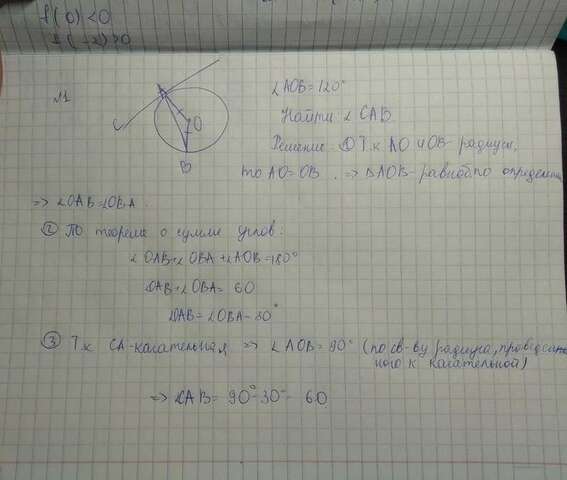 f(0)<0
f(-2)>0
№1
A
C
O
B
∠AOB=120°
Найти: ∠CAB
Решение: ① Т.к AO и OB- радиусы,
то AO=OB. => ΔAOB- равноб по определен
=> ∠OAB=∠OBA.
② По теореме о сумме углов:
∠OAB+∠OBA+∠AOB=180°
∠OAB+∠OBA= 60
∠OAB=∠OBA=30°
③ Т.к CA-касательная => ∠AOB=90° (по св-ву радиуса, проведен
ного к касательной)
=> ∠CAB= 90°-30°= 60